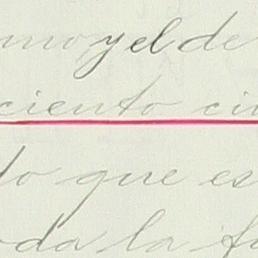 mo y el de
ciento ci
do que es
oda la fu